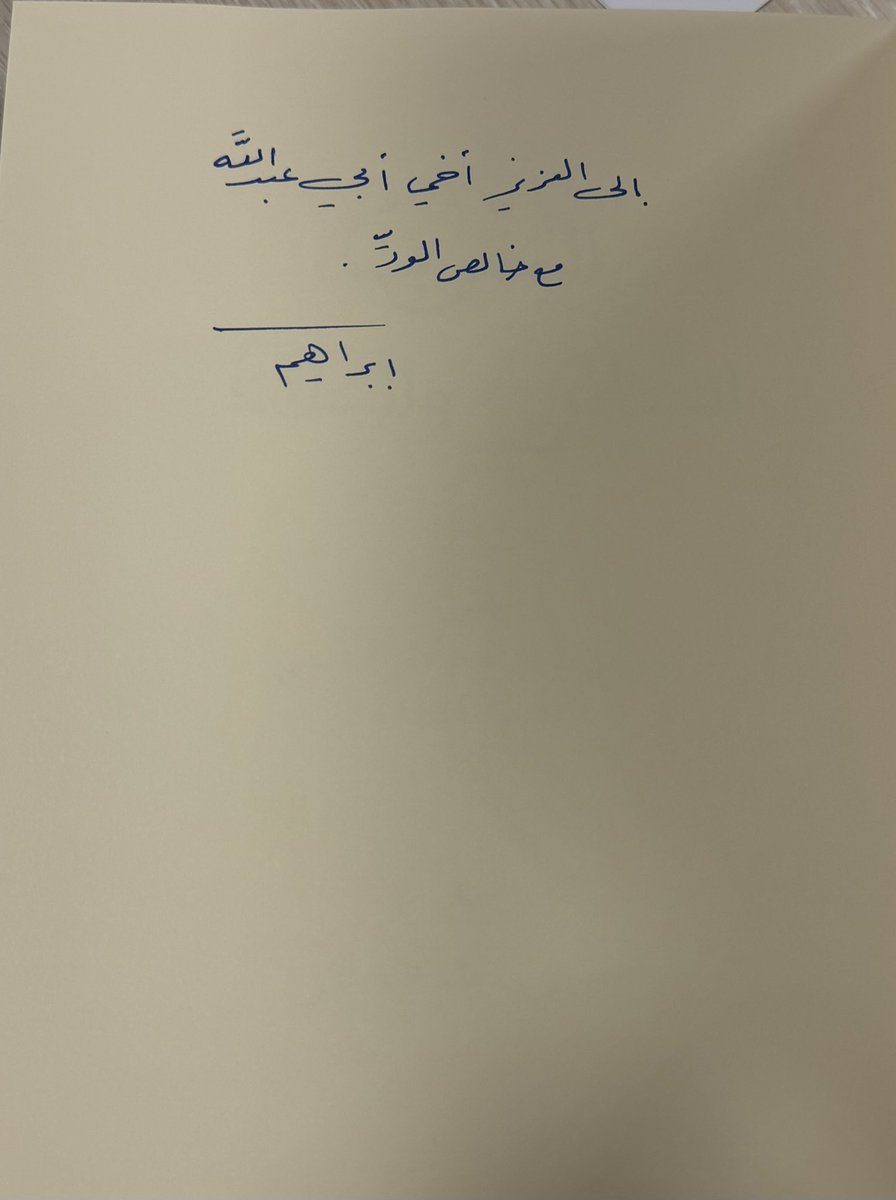 إلى العزيز أخي أبي عبد اللَّه
مع خالص الودِّ .
ابراهيم